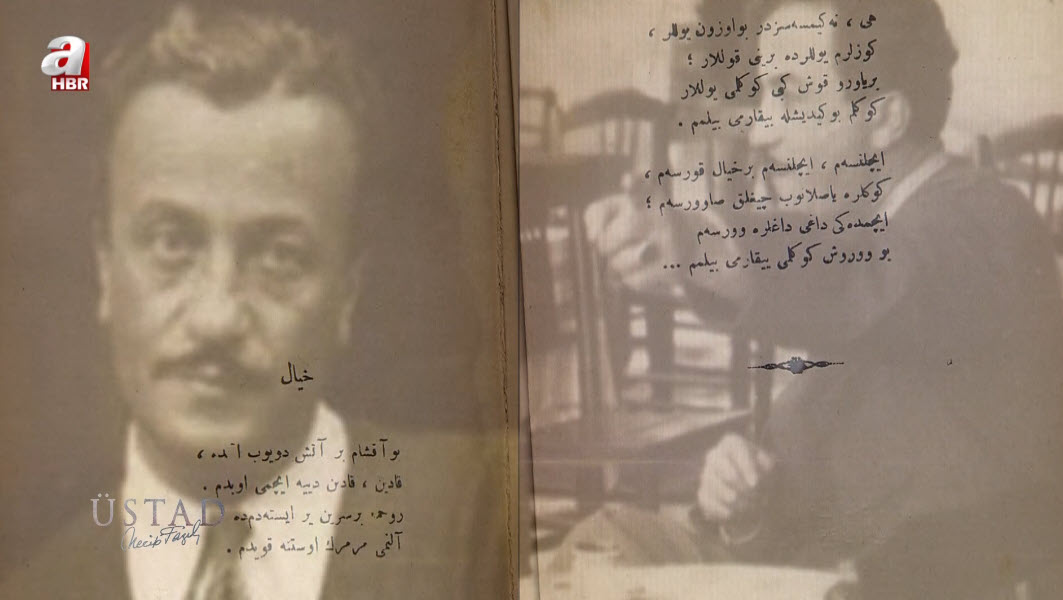 a
HBR
هی ، نه‌کیمسه‌سزدر بو اوزون یوللر ،
کوزلرم یوللرده برینی قوللار ؛
بر یاورو قوش کبی کوکلمی یوللار
کوکلم بو کیدیشله بیقارمی بیلمم .
ایچلنسه‌م ، ایچلنسه‌م بر خیال قورسه‌م ،
کوکلره یاصلانوب چیغلق صاوورسه‌م ؛
ایچمده‌کی داغی داغلره وورسه‌م
بو ووروش کوکلمی ییقارمی بیلمم ...
خیال
بو آقشام بر آتش دویوب
قادین ، قادین دییه ایچمی اویدم .
بر سرین یر ایسته‌دم‌ده
آلنمی مرمرك اوستنه قویدم .
ÜSTAD
Necip Fazıl